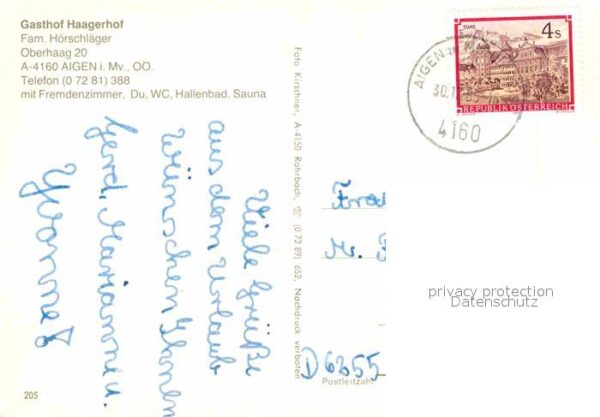 Gasthof Haagerhof
Fam. Hörschläger
Oberhaag 20
A-4160 AIGEN i. Mv., OO.
Telefon (0 72 81) 388
mit Fremdenzimmer, Du, WC, Hallenbad, Sauna
Viele Grüße
aus dem Urlaub
wünschen Ihnen
Gerd, Marianne u.
Yvonne
205
Foto Kirschner, A-4150 Rohrbach, ☎ (0 72 89) 652, Nachdruck verboten
4s
REPUBLIK ÖSTERREICH
AIGEN
30.1
4160
D6355
Postleitzahl
privacy protection
Datenschutz